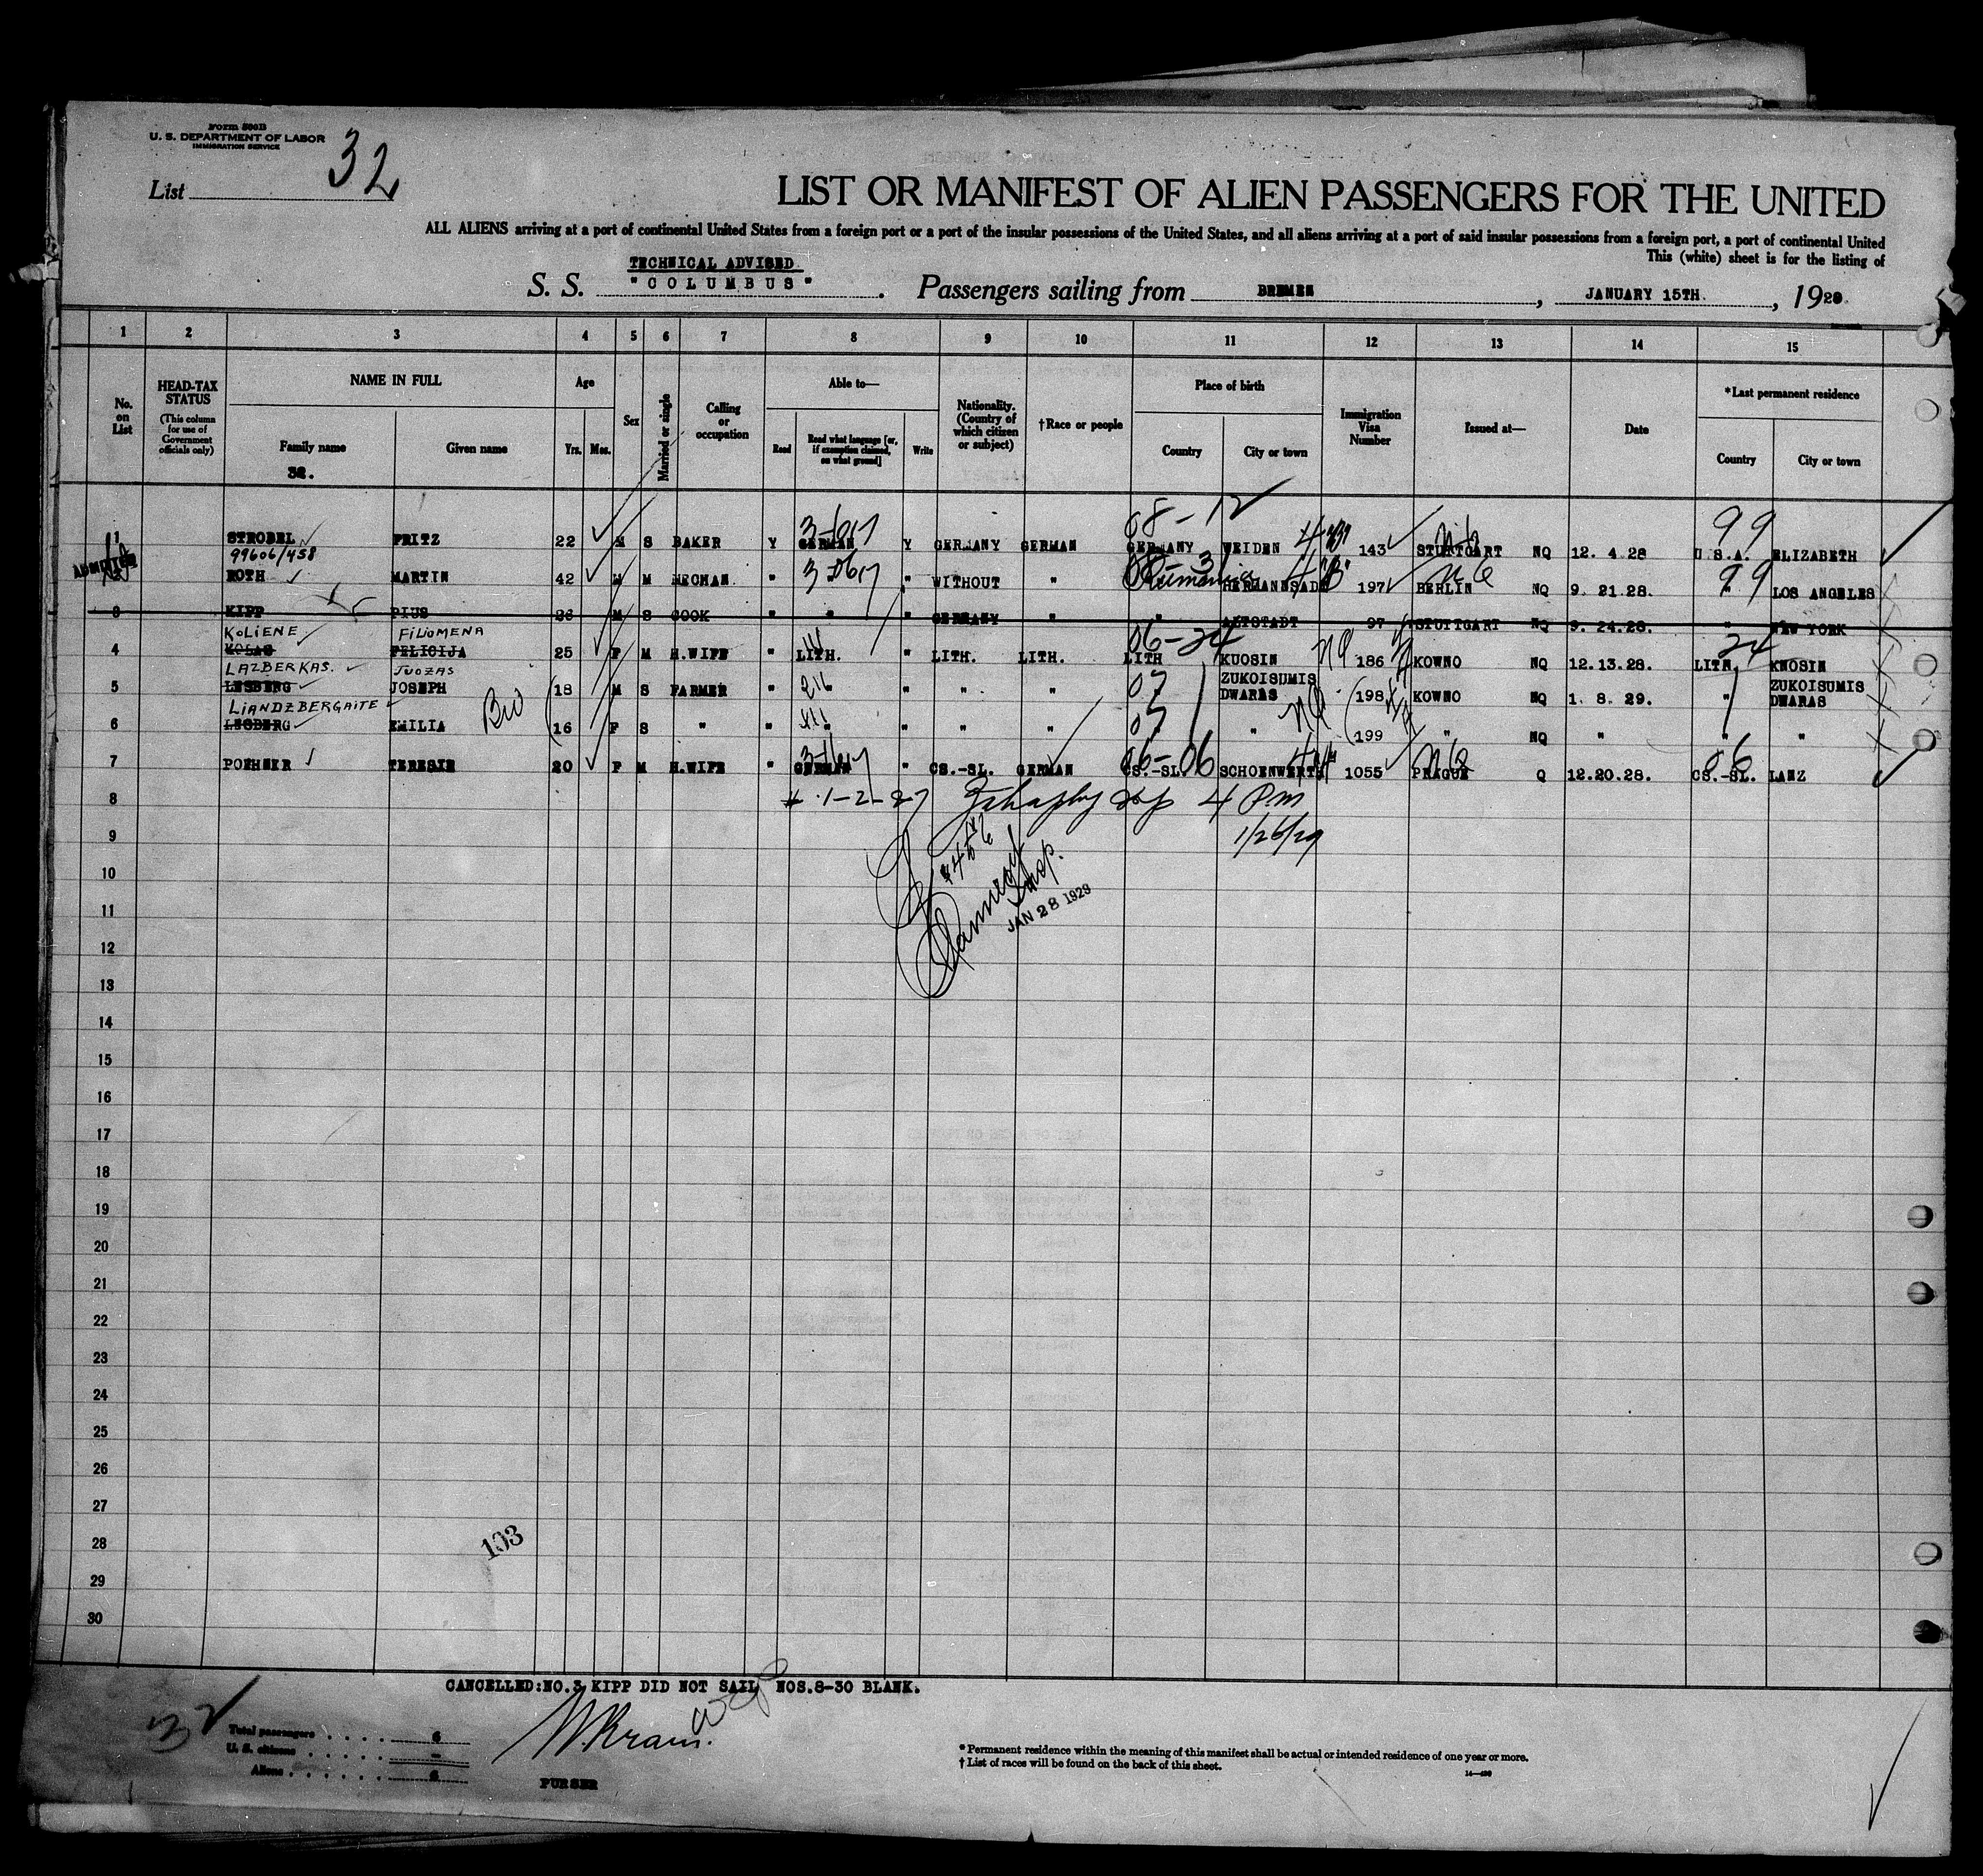 Form 500B
U. S. DEPARTMENT OF LABOR
IMMIGRATION SERVICE
List 32
LIST OR MANIFEST OF ALIEN PASSENGERS FOR THE UNITED
ALL ALIENS arriving at a port of continental United States from a foreign port or a port of the insular possessions of the United States, and all aliens arriving at a port of said insular possessions from a foreign port, a port of continental United
This (white) sheet is for the listing of
TECHNICAL ADVISED.
S. S. "COLUMBUS". Passengers sailing from BREMEN, JANUARY 15TH., 1929.
1 2 3 4 5 6 7 8 9 10 11 12 13 14 15
No. on List
HEAD-TAX STATUS
(This column for use of Government officials only)
NAME IN FULL
Family name
Given name
32.
Age
Yrs. Mos.
Sex
Married or single
Calling or occupation
Able to—
Read
Read what language [or, if exemption claimed, on what ground]
Write
Nationality. (Country of which citizen or subject)
†Race or people
Place of birth
Country
City or town
Immigration Visa Number
Issued at—
Date
*Last permanent residence
Country
City or town
08-12 99
1 STROBEL FRITZ 22 M S BAKER Y GERMAN Y GERMANY GERMAN GERMANY WEIDEN 143 STUTTGART NQ 12. 4.28 U.S.A. ELIZABETH
99606/458
ADMITTED
ROTH MARTIN 42 M M MECHAN. " " WITHOUT " Rumania HERMANNSADT 197 BERLIN NQ 9. 21.28. " LOS ANGELES
3 KIPP PIUS 26 M S COOK " " " GERMANY " " ALTSTADT 97 STUTTGART NQ 9. 24.28. " NEW YORK
KOLIENE FILIOMENA 06-24 24
4 KOLAS FELICIJA 25 F M H.WIFE " LITH. " LITH. LITH. LITH KUOSIN NQ 186 KOWNO NQ 12.13.28. LITH. KNOSIN
LAZBERKAS. JUOZAS ZUKOISUMIS ZUKOISUMIS
5 LESBERG JOSEPH 18 M S FARMER " " " " " 07 DWARAS 198 KOWNO NQ 1. 8. 29. " DWARAS
LIANDZBERGAITE
6 LESBERG EMILIA 16 F S " " " " " 07 NQ 199 " NQ " " "
06-06 06
7 POEHNER TERESIE 20 F M H.WIFE " GERMAN " CS.-SL. GERMAN CS.-SL. SCHOENWERTH 1055 PRAGUE Q 12.20.28. CS.-SL. LANZ
8 4 Pm
9 1/26/29
10
11 Insp. JAN 28 1929
12
13
14
15
16
17
18
19
20
21
22
23
24
25
26
27
28 103
29
30
CANCELLED:NO.3 KIPP DID NOT SAIL NOS.8-30 BLANK.
32
Total passengers . . . . 6
U. S. citizens . . . . . -
Aliens . . . . . . 6
PURSER
* Permanent residence within the meaning of this manifest shall be actual or intended residence of one year or more.
† List of races will be found on the back of this sheet.